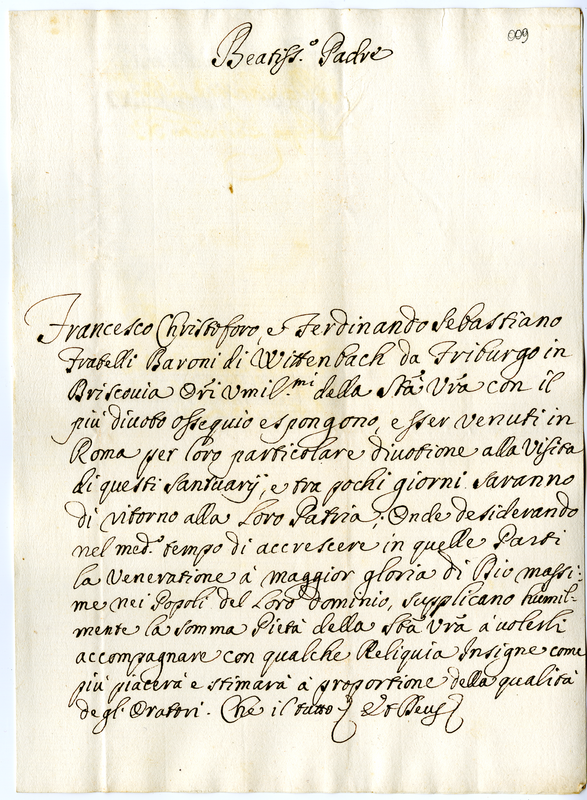 009
Beatiss.º Padre
Francesco Christoforo, e Ferdinando Sebastiano
Fratelli Baroni di Wittenbach da Friburgo in
Briscovia Orri Vmil.mi della Stà Vrã con il
più diuoto ossequio espongono, esser venuti in
Roma per loro particolare diuotione alla Visita
di questi Santuarÿ, e tra pochi giorni saranno
di ritorno alla Loro Patria; Onde desiderando
nel med.º tempo di accrescere in quelle Parti
la Veneratione à maggior gloria di Dio massi:
me nei Popoli del Loro dominio, supplicano humil-
mente la somma Pietà della Stà Vrã à uolerli
accompagnare con qualche Reliquia Insigne come
più piacerà e stimarà à proportione della qualità
degl'Oratori. Che il tutto Et Deus